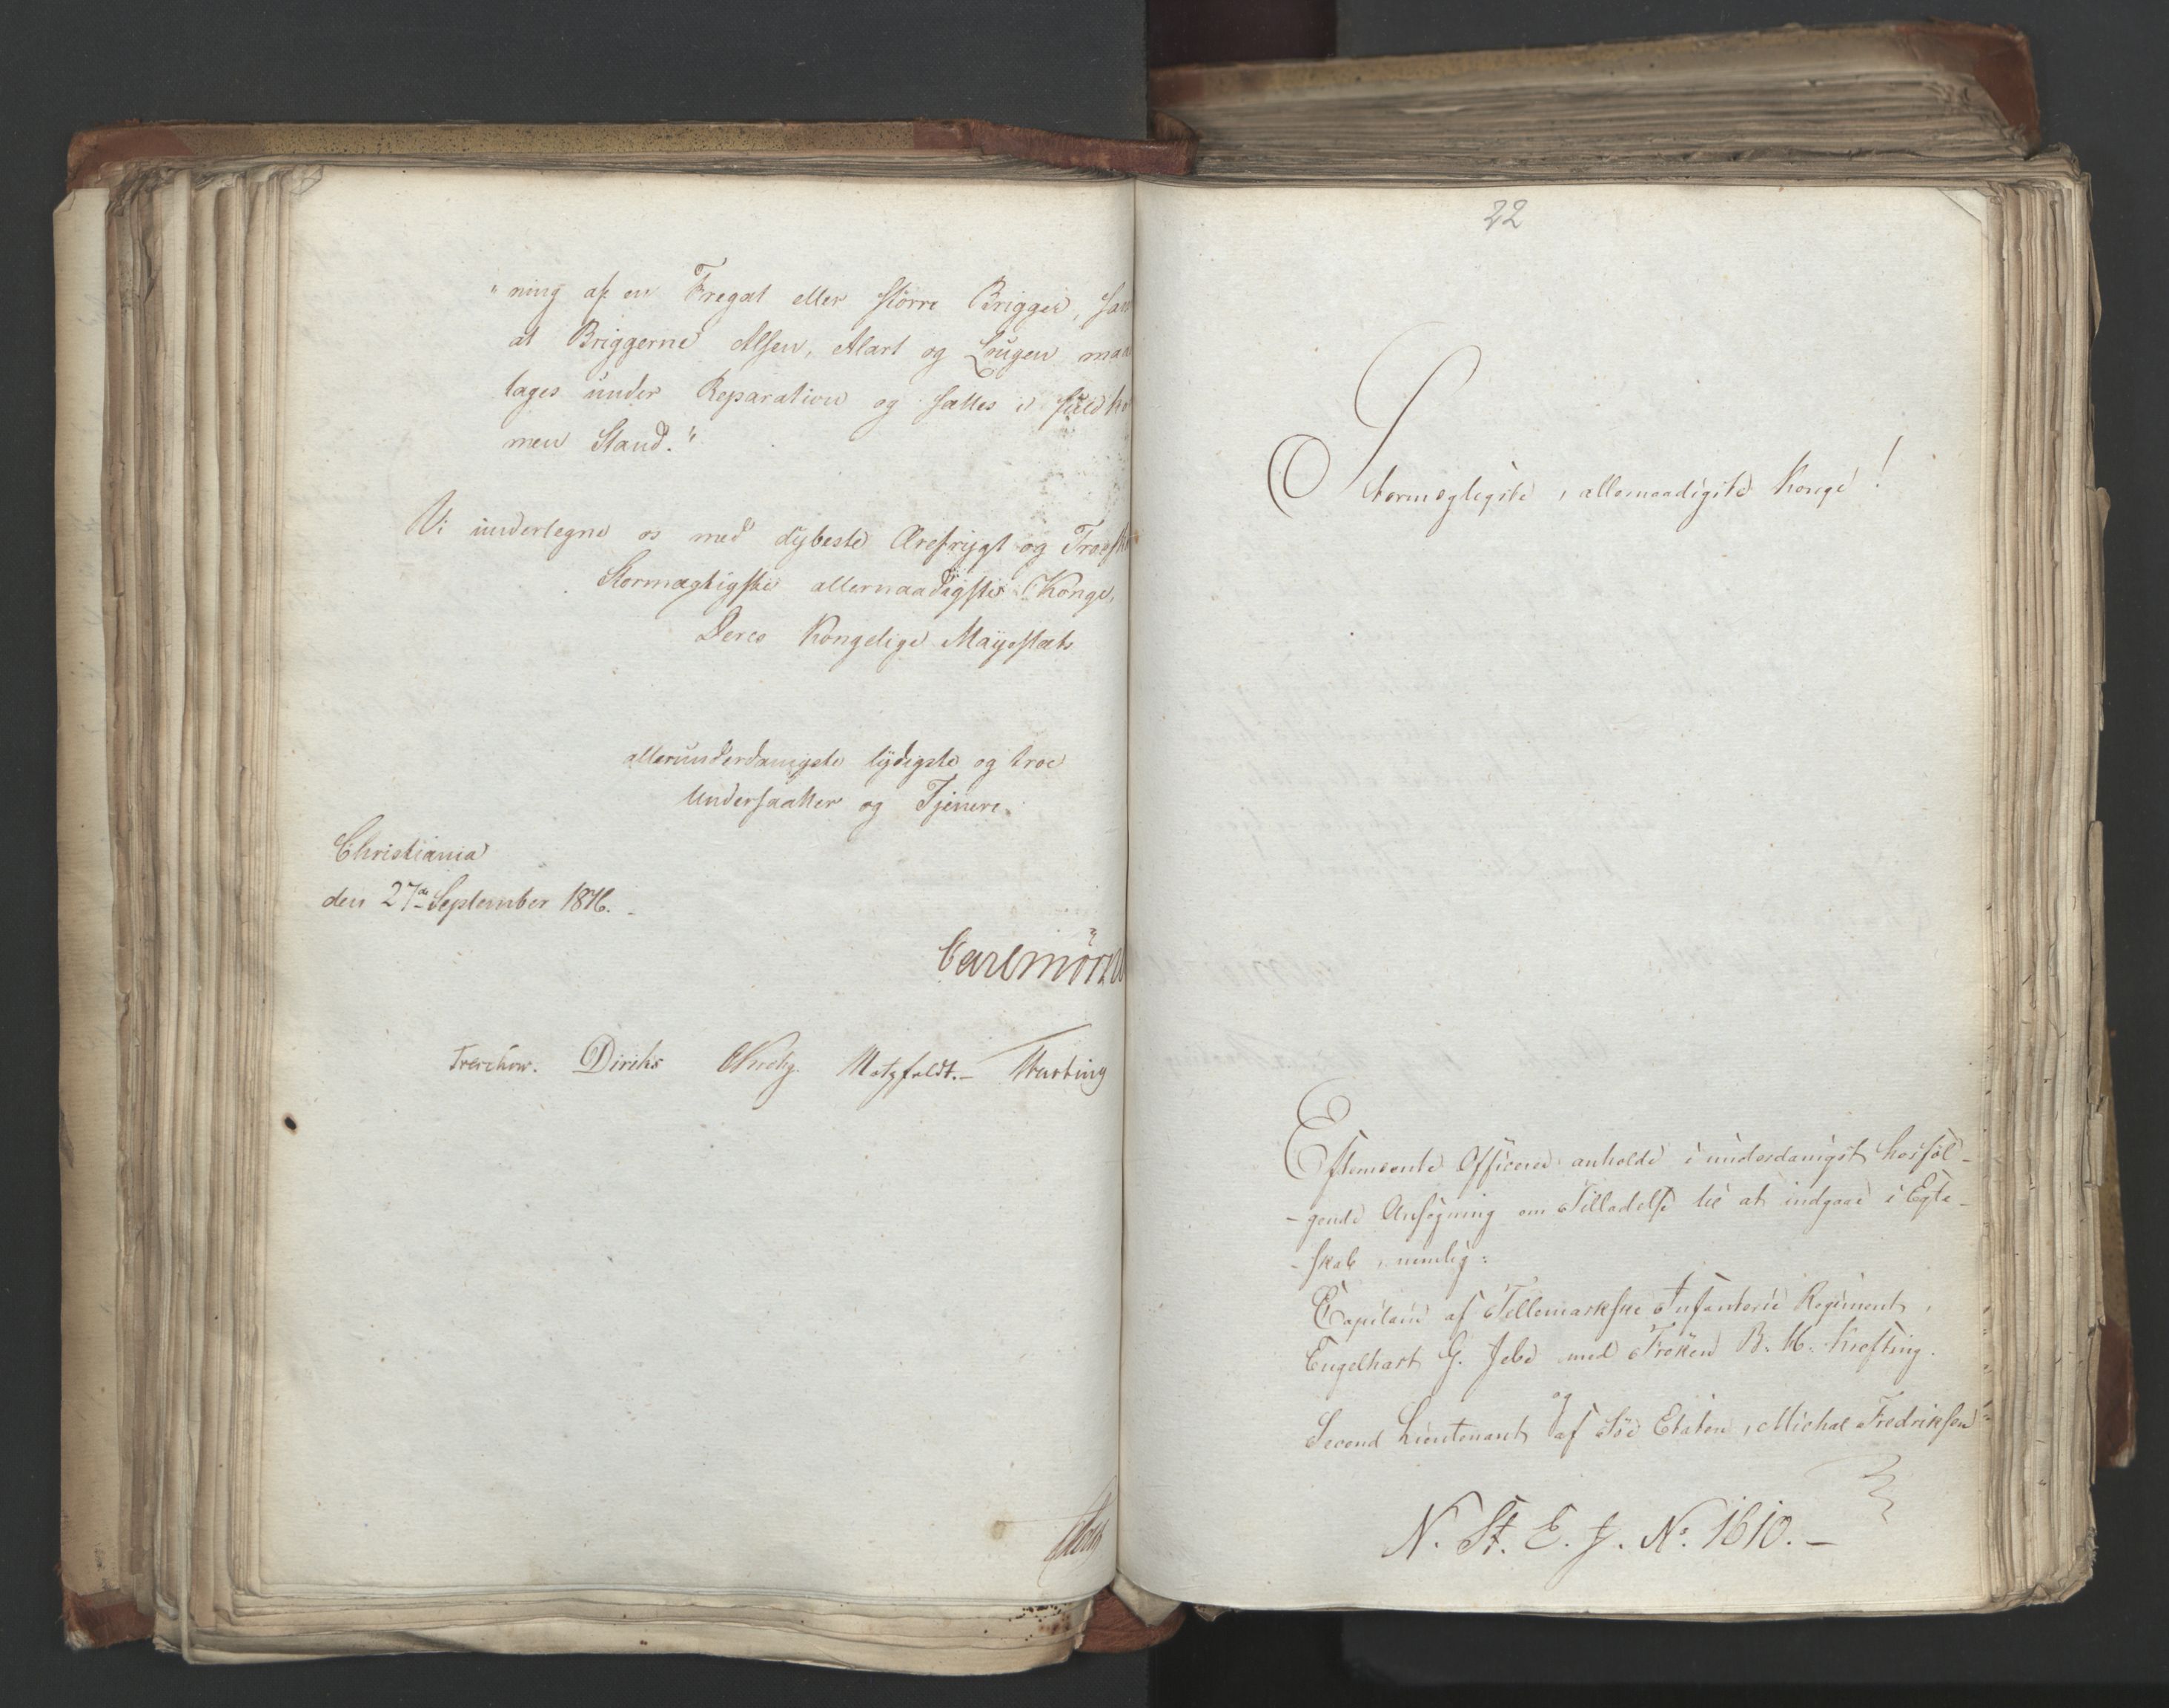 "ning af en Fregat eller större Brigger, sam
at Briggerne Alsen, Alart og Lougen maa
tages under Reparation og sættes i fuldko
men Stand."
Vi undertegne os med dybeste Ærefrygt og Troesk
Stormægtigste allernaadigste Konge,
Deres Kongelige Majestæts
allerunderdanigste lydigste og troe
Undersaatter og Tjenere.
Christiania
den 27de September 1816.
Carl Mörne
Treschow. Diriks Motzfeldt.
22
Stormægtigste, allernaadigste Konge!
Eftermeldte Officerer anholde i underdanigst hosföl-
-gende Ansögning om Tilladelse til at indgaae i Egte-
-skab, nemlig:
Capitain af Tellemarkske Infanterie Regiment,
Engelhart G. Jebe med Fröken B. M. Krefting.
og
Second Lieutenant af Söe Etaten, Michal Fredriksen
N. St. E. J. No: 1610.-